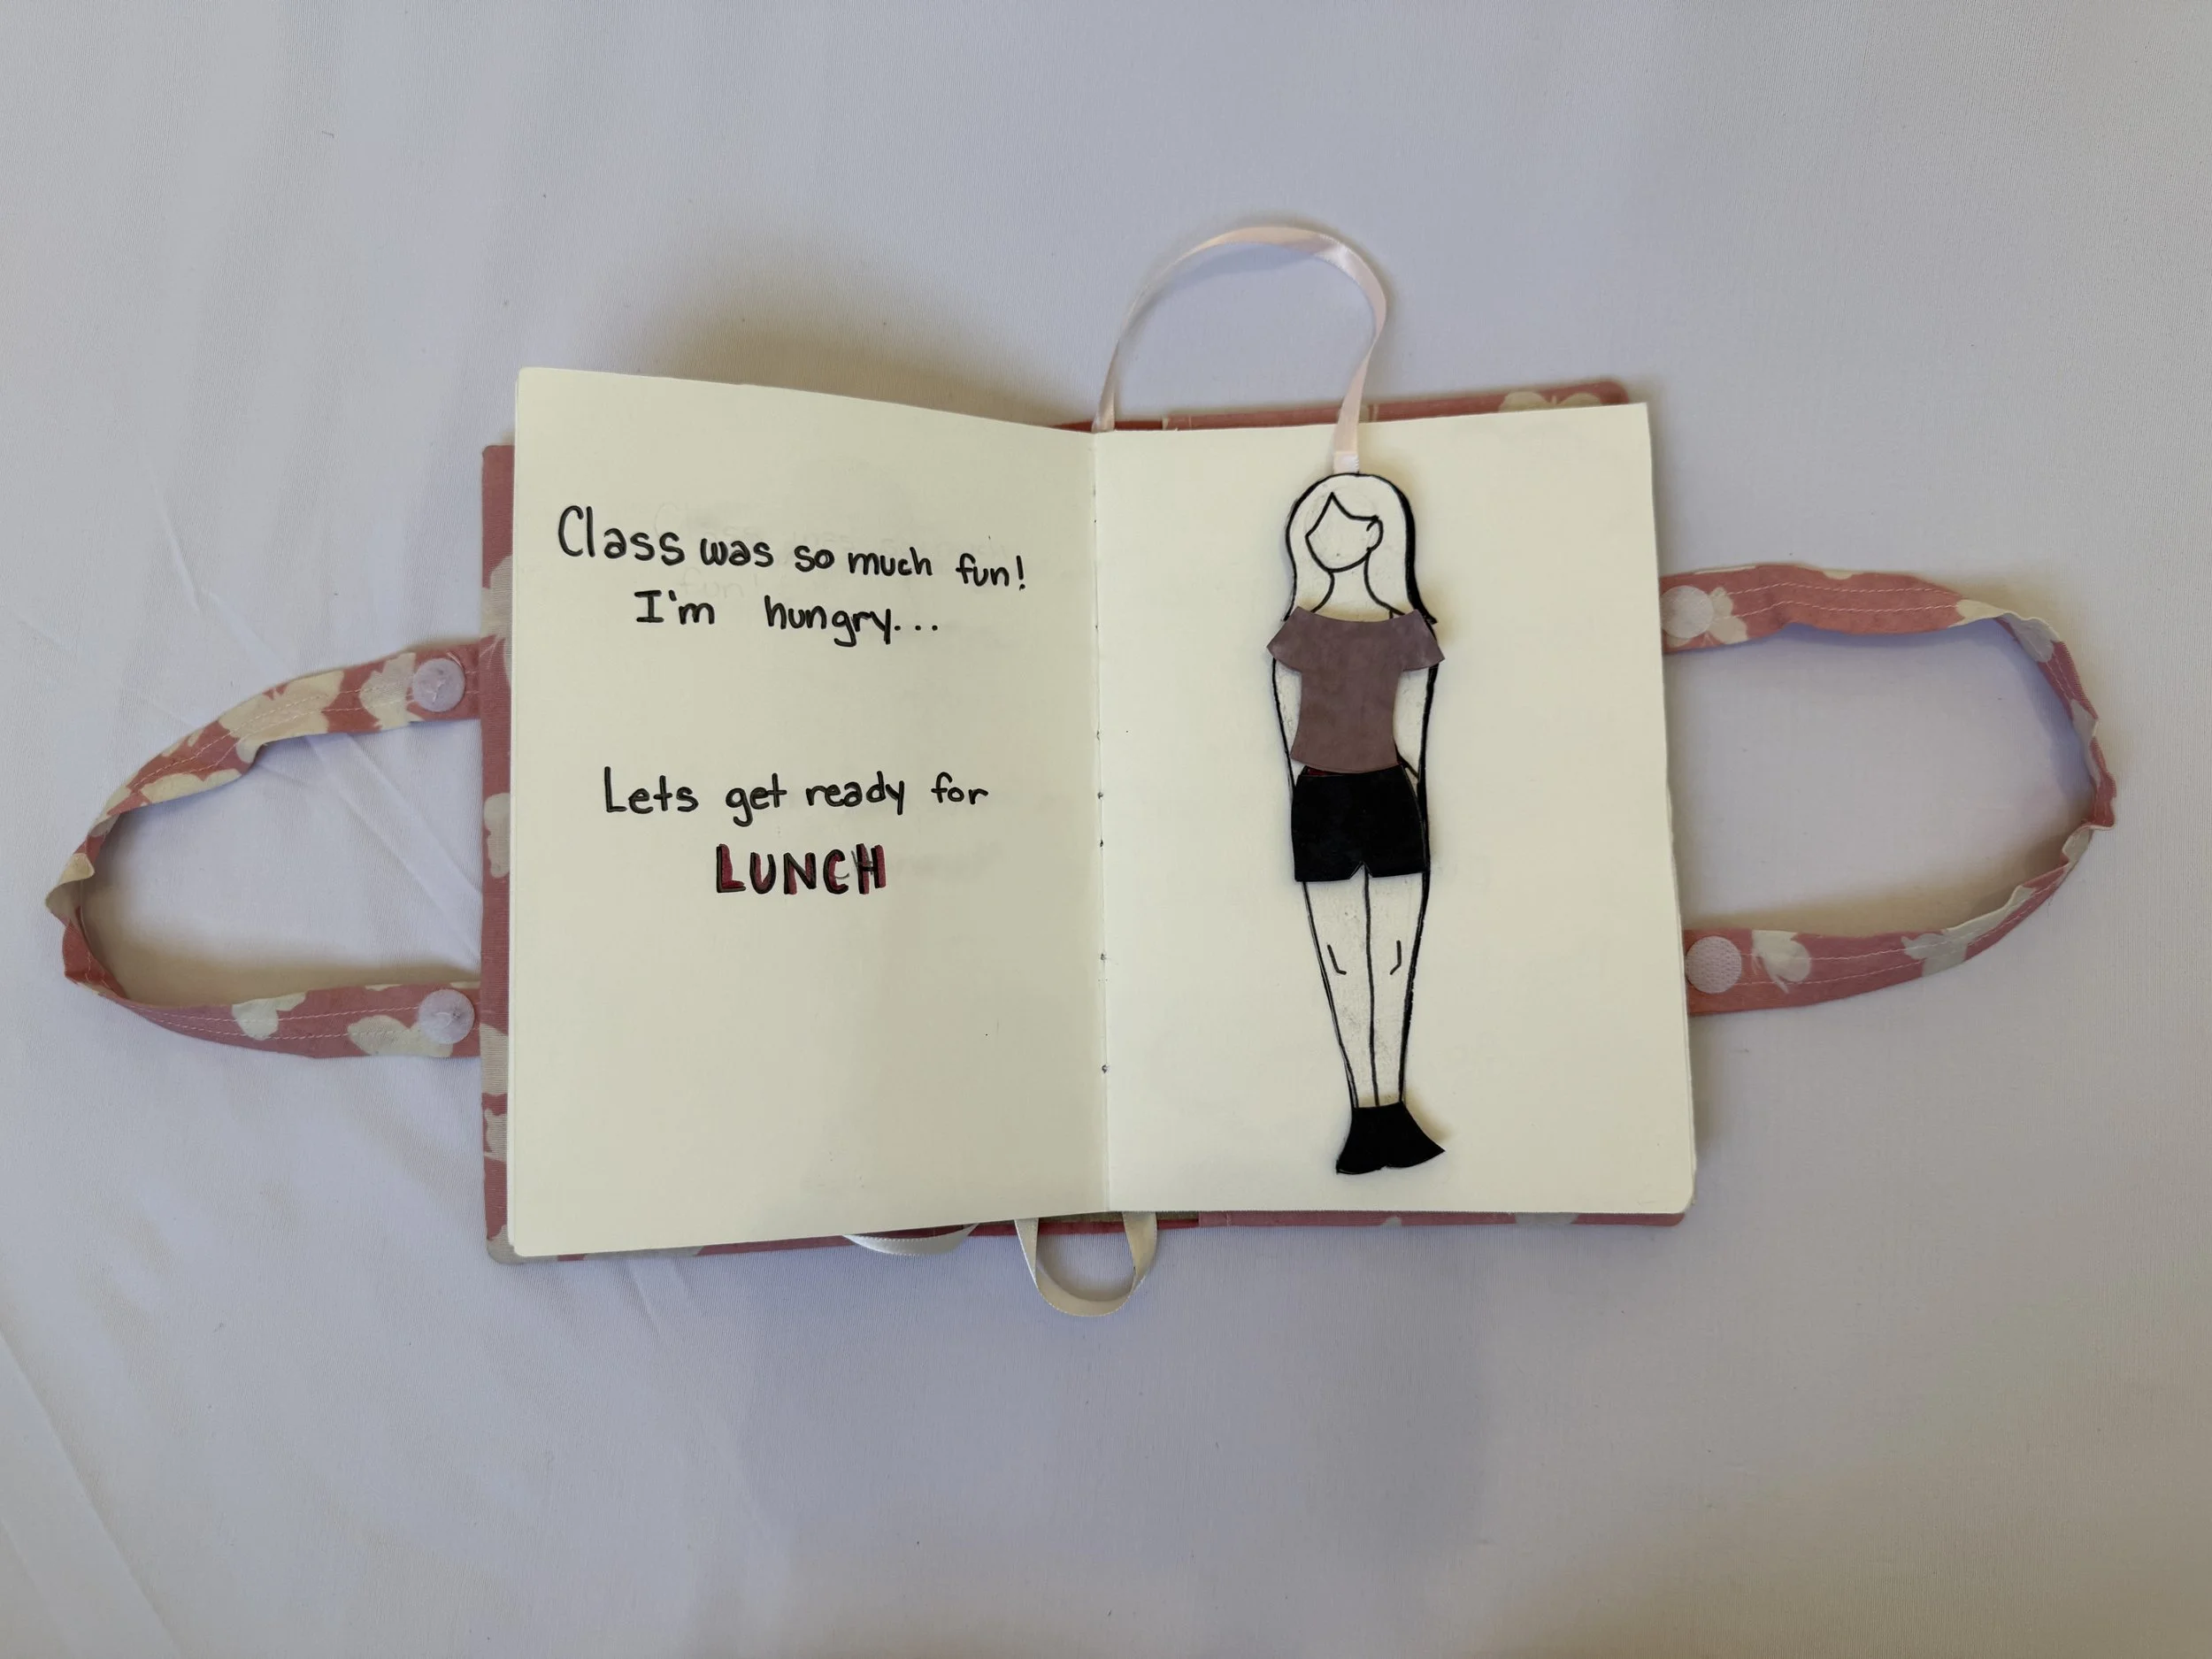 Class was so much fun!
I'm hungry...
Lets get ready for
LUNCH